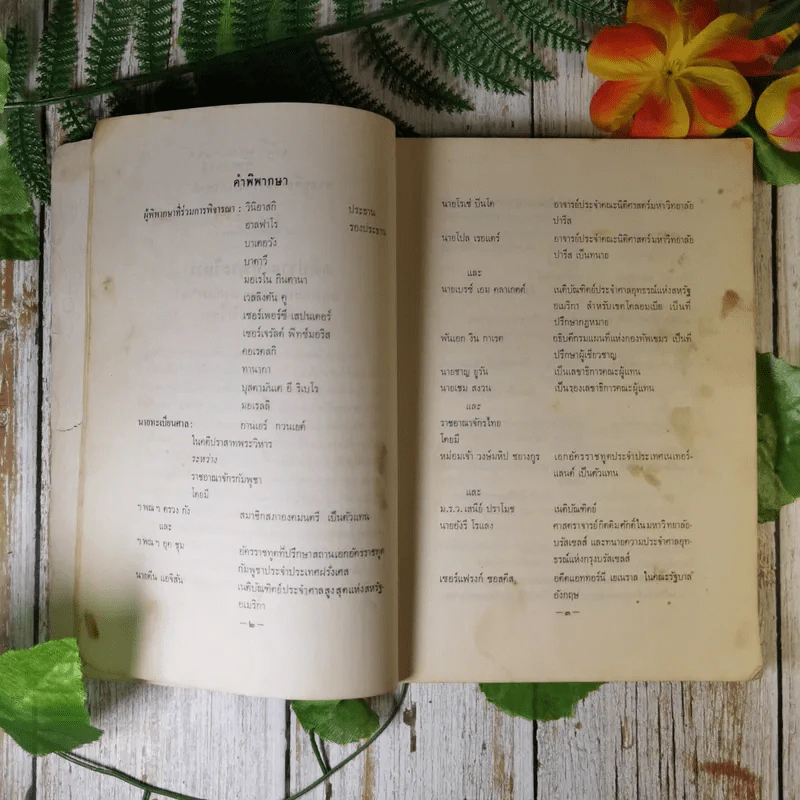 คำพิพากษา
ผู้พิพากษาที่ร่วมการพิจารณา : วินิอาสกิ ประธาน
อาลฟาโร รองประธาน
บาเดอวัง
บาดาวี
มอเรโน กินตานา
เวลลิงตัน คู
เซอร์เพอร์ซี่ สเปนเดอร์
เซอร์เจรัลด์ ฟิทซ์มอริส
คอเรตสกี
ทานากา
บุสตามันเต อี ริเบโร
มอเรลลิ
นายทะเบียนศาล : การ์เนียร์ กวนเยต์
ในคดีปราสาทพระวิหาร
ระหว่าง
ราชอาณาจักรกัมพูชา
โดยมี
ฯพณฯ ตรวง กัง สมาชิกสภาองคมนตรี เป็นตัวแทน
และ
ฯพณฯ อุค ชุม อัครราชทูตที่ปรึกษาสถานเอกอัครราชทูต
กัมพูชาประจำประเทศฝรั่งเศส
นายดีน แอจิสัน เนติบัณฑิตย์ประจำศาลสูงสุดแห่งสหรัฐ-
อเมริกา
—๒—
นายโรเช่ ปินโต อาจารย์ประจำคณะนิติศาสตร์มหาวิทยาลัย
ปารีส
นายโปล เรอแตร์ อาจารย์ประจำคณะนิติศาสตร์มหาวิทยาลัย
ปารีส เป็นทนาย
และ
นายเบรซ์ เอม คลาเกตต์ เนติบัณฑิตย์ประจำศาลอุทธรณ์แห่งสหรัฐ
อเมริกา สำหรับเขตโคลอมเบีย เป็นที่
ปรึกษากฎหมาย
พันเอก งิน กาเรต อธิบดีกรมแผนที่แห่งกองทัพเขมร เป็นที่
ปรึกษาผู้เชี่ยวชาญ
นายชาญ ยูรัน เป็นเลขาธิการคณะผู้แทน
นายเขม สงวน เป็นรองเลขาธิการคณะผู้แทน
และ
ราชอาณาจักรไทย
โดยมี
หม่อมเจ้า วงษ์มหิป ชยางกูร เอกอัครราชทูตประจำประเทศเนเทอร์-
แลนด์ เป็นตัวแทน
และ
ม.ร.ว. เสนีย์ ปราโมช เนติบัณฑิตย์
นายอังรี โรแลง ศาสตราจารย์กิตติมศักดิ์ในมหาวิทยาลัย-
บรัสเซลส์ และทนายความประจำศาลอุท-
ธรณ์แห่งกรุงบรัสเซลส์
เซอร์แฟรงก์ ซอสคีส อดีตแอททอร์นี เยเนราล ในคณะรัฐบาล
อังกฤษ
—๓—